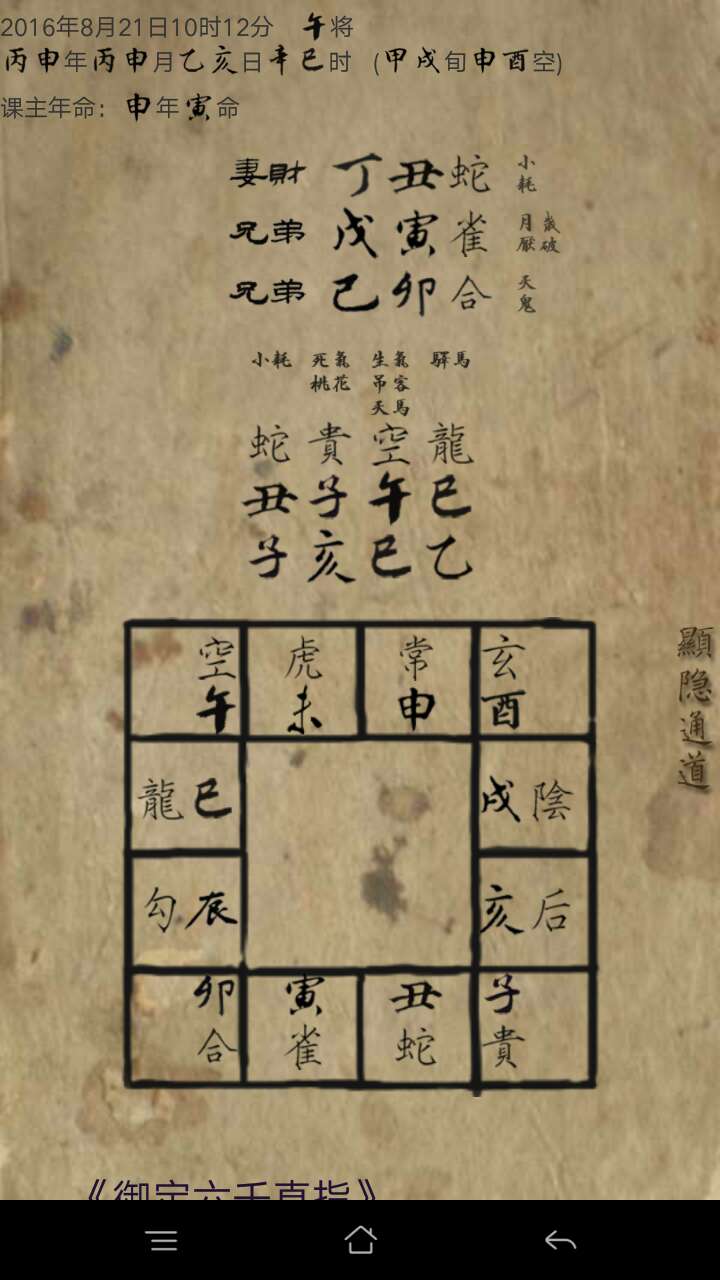 2016年8月21日10时12分 午将
丙申年丙申月乙亥日辛巳时 (甲戌旬申酉空)
课主年命：申年寅命
妻財 丁丑蛇 小耗
兄弟 戊寅雀 月厭 歲破
兄弟 己卯合 天鬼
小耗 死氣 生氣 驛馬
桃花 吊客
天馬
蛇貴空龍
丑子午巳
子亥巳乙
空虎常玄
午未申酉
龍巳 戌陰
勾辰 亥后
卯寅丑子
合雀蛇貴
顯隐通道
《御定六壬直指》